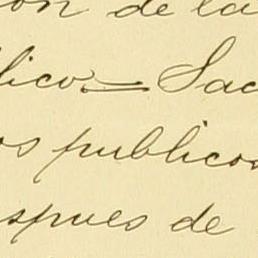 on de la
lico = Sac
os publicos
spues de